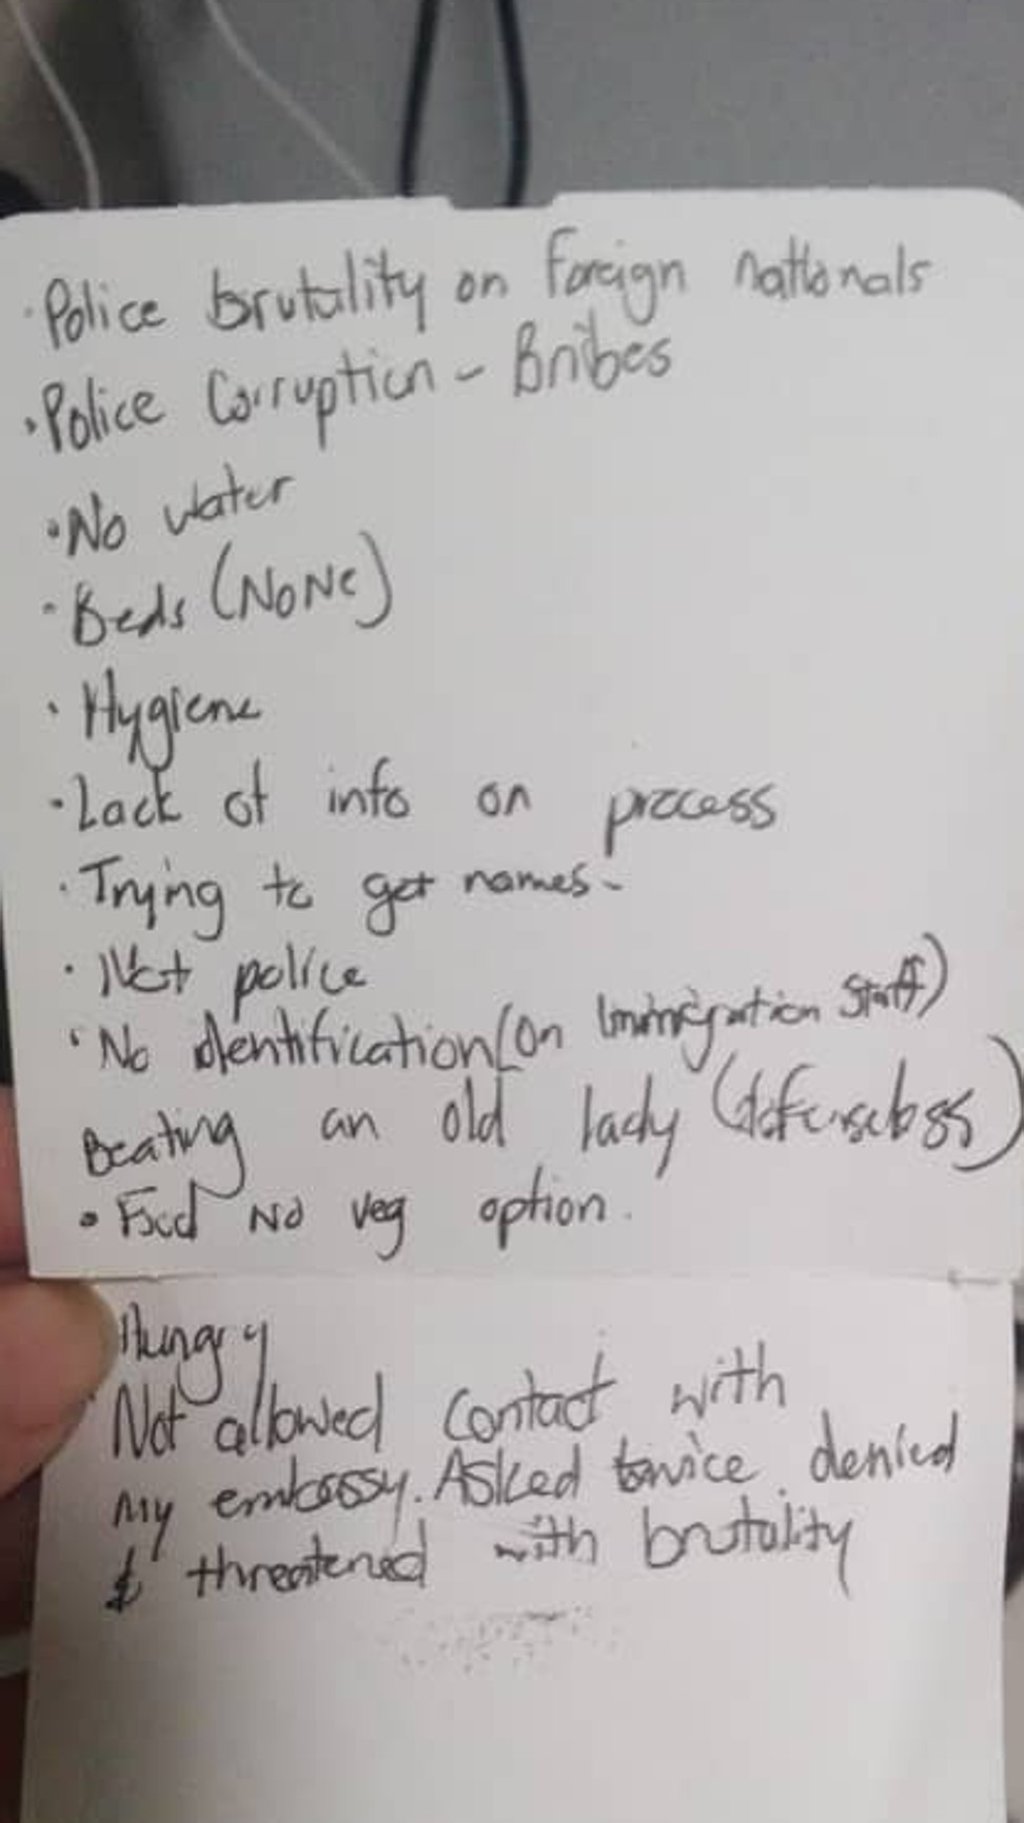 · Police brutality on foreign nationals
· Police Corruption - Bribes
· No water
· Beds (NONe)
· Hygiene
· Lack of info on process
· Trying to get names-
· Not police
· No identification (On Immigration Staff)
Beating an old lady (defenseless)
· Food No veg option.
Hungry
Not allowed contact with
my embassy. Asked twice denied
& threatened with brutality